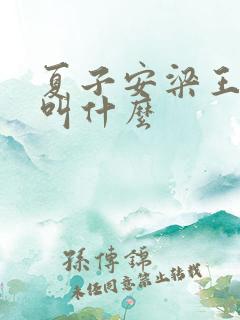 夏子安梁王
叫什麼
孫傳錦
未经同意禁止转载